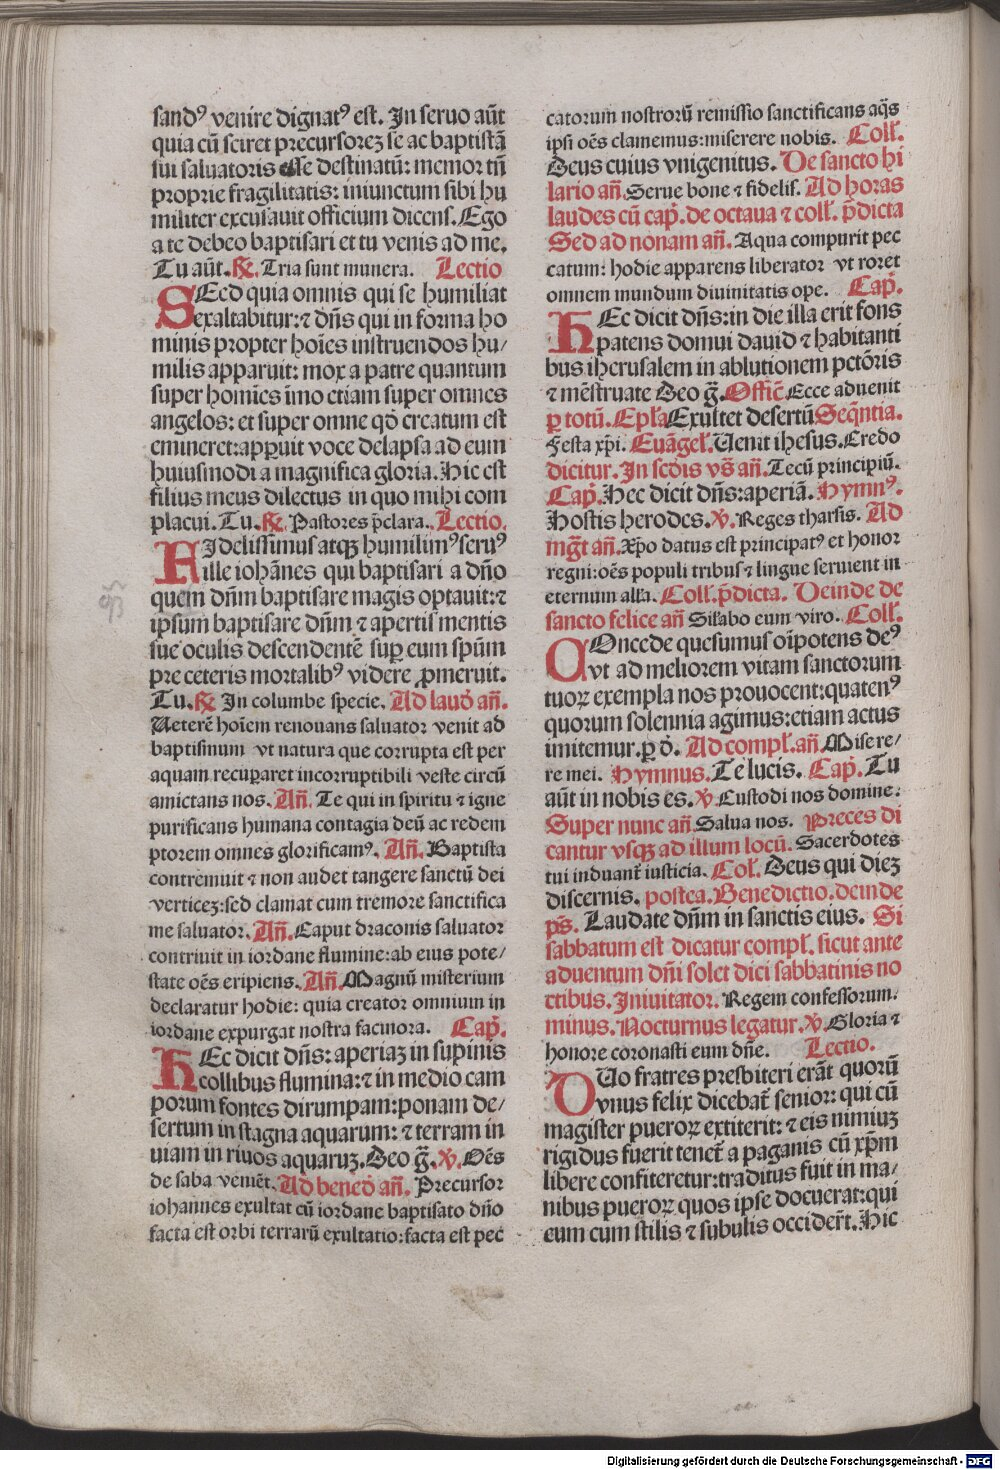 sandꝰ venire dignatꝰ est. In seruo aūt
quia cū sciret precursorez se ac baptistā
sui saluatoris esse destinatū: memor tn̄
proprie fragilitatis: iniunctum sibi hu
militer excusauit officium dicens. Ego
a te debeo baptisari et tu venis ad me.
Tu aūt. ℟. Tria sunt munera. Lectio
SEcd quia omnis qui se humiliat
exaltabitur: ⁊ dn̄s qui in forma ho
minis propter hoīes instruendos hu/
milis apparuit: mox a patre quantum
super homīes imo etiam super omnes
angelos: et super omne qd̄ creatum est
emineret: apꝑuit voce delapsa ad eum
huiusmodi a magnifica gloria. Hic est
filius meus dilectus in quo mihi com
placui. Tu. ℟. Pastores p̄clara. Lectio.
FIdelissimus atqꝫ humilimꝰ seruꝰ
ille iohānes qui baptisari a dn̄o
quem dn̄m baptisare magis optauit: ⁊
ipsum baptisare dn̄m ⁊ apertis mentis
sue oculis descendentē suꝑ eum spūm
pre ceteris mortalibꝰ videre ꝓmeruit.
Tu. ℟ In columbe specie. Ad laud̄ añ.
Ueterē hoīem renouans saluator venit ad
baptismum vt natura que corrupta est per
aquam recuꝑaret incorruptibili veste circū
amictans nos. Añ. Te qui in spiritu ⁊ igne
purificans humana contagia deū ac redem
ptorem omnes glorificamꝰ. Añ. Baptista
contremuit ⁊ non audet tangere sanctū dei
verticez: sed clamat cum tremore sanctifica
me saluator. Añ. Caput draconis saluator
contriuit in iordane flumine: ab eius pote/
state oēs eripiens. Añ. Magnū misterium
declaratur hodie: quia creator omnium in
iordane expurgat nostra facinora. Cap̄.
HEc dicit dn̄s: aperiaz in supinis
collibus flumina: ⁊ in medio cam
porum fontes dirumpam: ponam de/
sertum in stagna aquarum: ⁊ terram in
uiam in riuos aquaruz. Deo ḡ. ℣. Oēs
de saba veniēt. Ad bened̄ añ. Precursor
iohannes exultat cū iordane baptisato dn̄o
facta est orbi terrarū exultatio: facta est pec
catorum nostrorū remissio sanctificans aq̄s
ipsi oēs clamemus: miserere nobis. Coll̄.
Deus cuius vnigenitus. De sancto hi
lario añ. Serue bone ⁊ fidelis. Ad horas
laudes cū cap̄. de octaua ⁊ coll̄. p̄dicta
Sed ad nonam añ. Aqua compurit pec
catum: hodie apparens liberator vt roret
omnem mundum diuinitatis ope. Cap̄.
HEc dicit dn̄s: in die illa erit fons
patens domui dauid ⁊ habitanti
bus iherusalem in ablutionem pctōris
⁊ mēstruate Deo ḡ. Officē. Ecce aduenit
ꝑ totū. Epl̄a Exultet desertū Seq̄ntia.
Festa xp̄i. Euāgel̄. Uenit ihesus. Credo
dicitur. In scd̄is vs̄ añ. Tecū principiū.
Cap̄. Hec dicit dn̄s: aperiā. Hymnꝰ.
Hostis herodes. ℣. Reges tharsis. Ad
mg̅t añ. Xp̄o datus est principatꝰ et honor
regni: oēs populi tribus ⁊ lingue seruient in
eternum all̄a. Coll̄. p̄dicta. Deinde de
sancto felice añ Sil̄abo eum viro. Coll̄.
COncede quesumus oīpotens deꝰ
vt ad meliorem vitam sanctorum
tuoꝝ exempla nos prouocent: quatenꝰ
quorum solennia agimus: etiam actus
imitemur. ꝑ d̄. Ad compl̄. añ Misere/
re mei. Hymnus. Te lucis. Cap̄. Tu
aūt in nobis es. ℣ Custodi nos domine.
Super nunc añ. Salua nos. Preces di
cantur vsqꝫ ad illum locū. Sacerdotes
tui induant̄ iusticia. Col̄. Deus qui diez
discernis. postea. Benedictio. deinde
ps̄. Laudate dn̄m in sanctis eius. Si
sabbatum est dicatur compl̄. sicut ante
aduentum dn̄i solet dici sabbatinis no
ctibus. Inuitator. Regem confessorum.
minus. Nocturnus legatur. ℣. Gloria ⁊
honore coronasti eum dn̄e. Lectio.
DUo fratres presbiteri erāt quorū
vnus felix dicebat̄ senior: qui cū
magister pueroꝝ extiterit: ⁊ eis nimiuz
rigidus fuerit tenet̄ a paganis cū xp̄m
libere confiteretur: traditus fuit in ma/
nibus pueroꝝ quos ipse docuerat: qui
eum cum stilis ⁊ subulis occider̄t. Hic
Digitalisierung gefördert durch die Deutsche Forschungsgemeinschaft - DFG